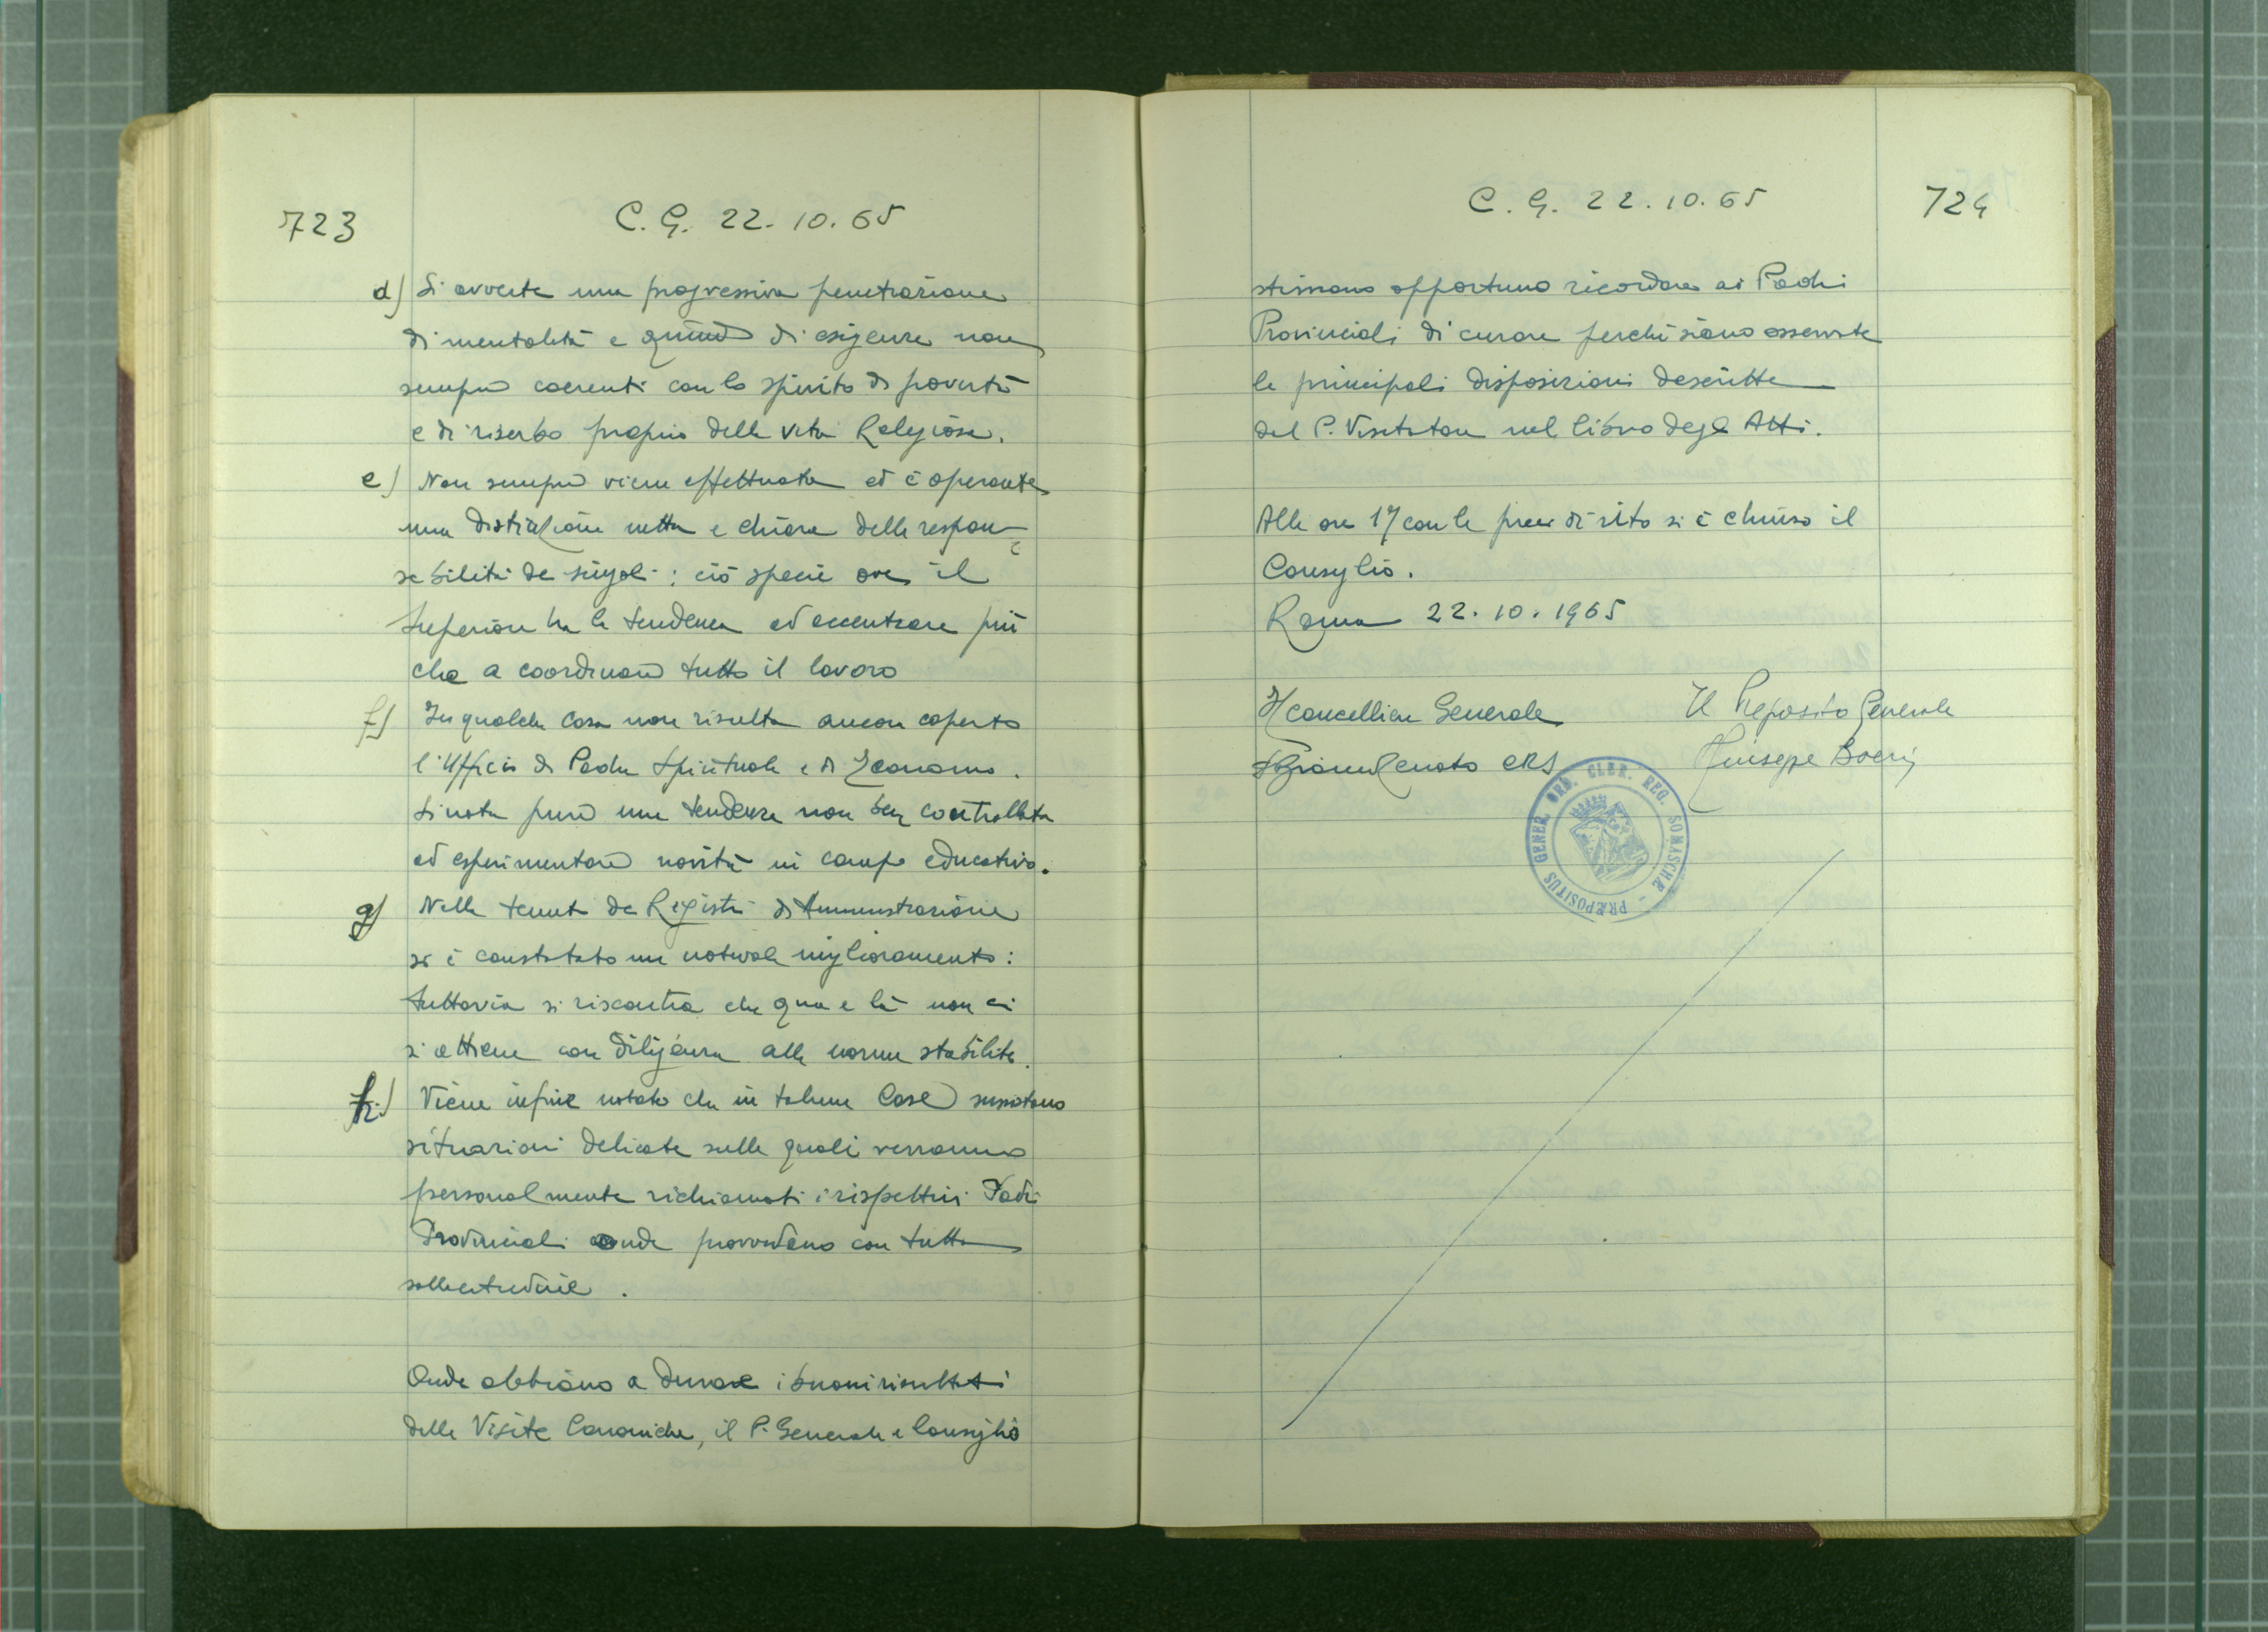 723
C. G. 22. 10. 65
d) Si avverte una progressiva penetrazione
di mentalità e quindi di esigenze non
sempre coerenti con lo spirito di povertà
e di riserbo proprio della vita Religiosa.
e) Non sempre viene effettuata ed è operante
una distinzione netta e chiara delle respon-
sabilità dei singoli: ciò specie ove il
Superiore ha la tendenza ad accentrare più
che a coordinare tutto il lavoro
f) In qualche Casa non risulta ancora coperto
l'Ufficio di Padre Spirituale e di Economo.
Si nota pure una tendenza non ben controllata
ad esperimentare novità in campo educativo.
g) Nella tenuta dei Registri di Amministrazione
si è constatato un notevole miglioramento:
tuttavia si riscontra che qua e là non ci
si attiene con diligenza alle norme stabilite.
h) Viene infine notato che in talune Case sussistono
situazioni delicate sulle quali verranno
personalmente richiamati i rispettivi Padri
Provinciali onde provvedano con tutta
sollecitudine.
Onde abbiano a durare i buoni risultati
delle Visite Canoniche, il P. Generale e Consiglio
C. G. 22. 10. 65
724
stimano opportuno ricordare ai Padri
Provinciali di curare perché siano osservate
le principali disposizioni descritte
dal P. Visitatore nel libro degli Atti.
Alle ore 17 con le preci di rito si è chiuso il
Consiglio.
Roma 22. 10. 1965
Il cancelliere Generale
Il Preposito Generale
Renato CRS
Giuseppe Boeri
PRÆPOSITUS GENER. ORD. CLER. REG. SOMASCHÆ